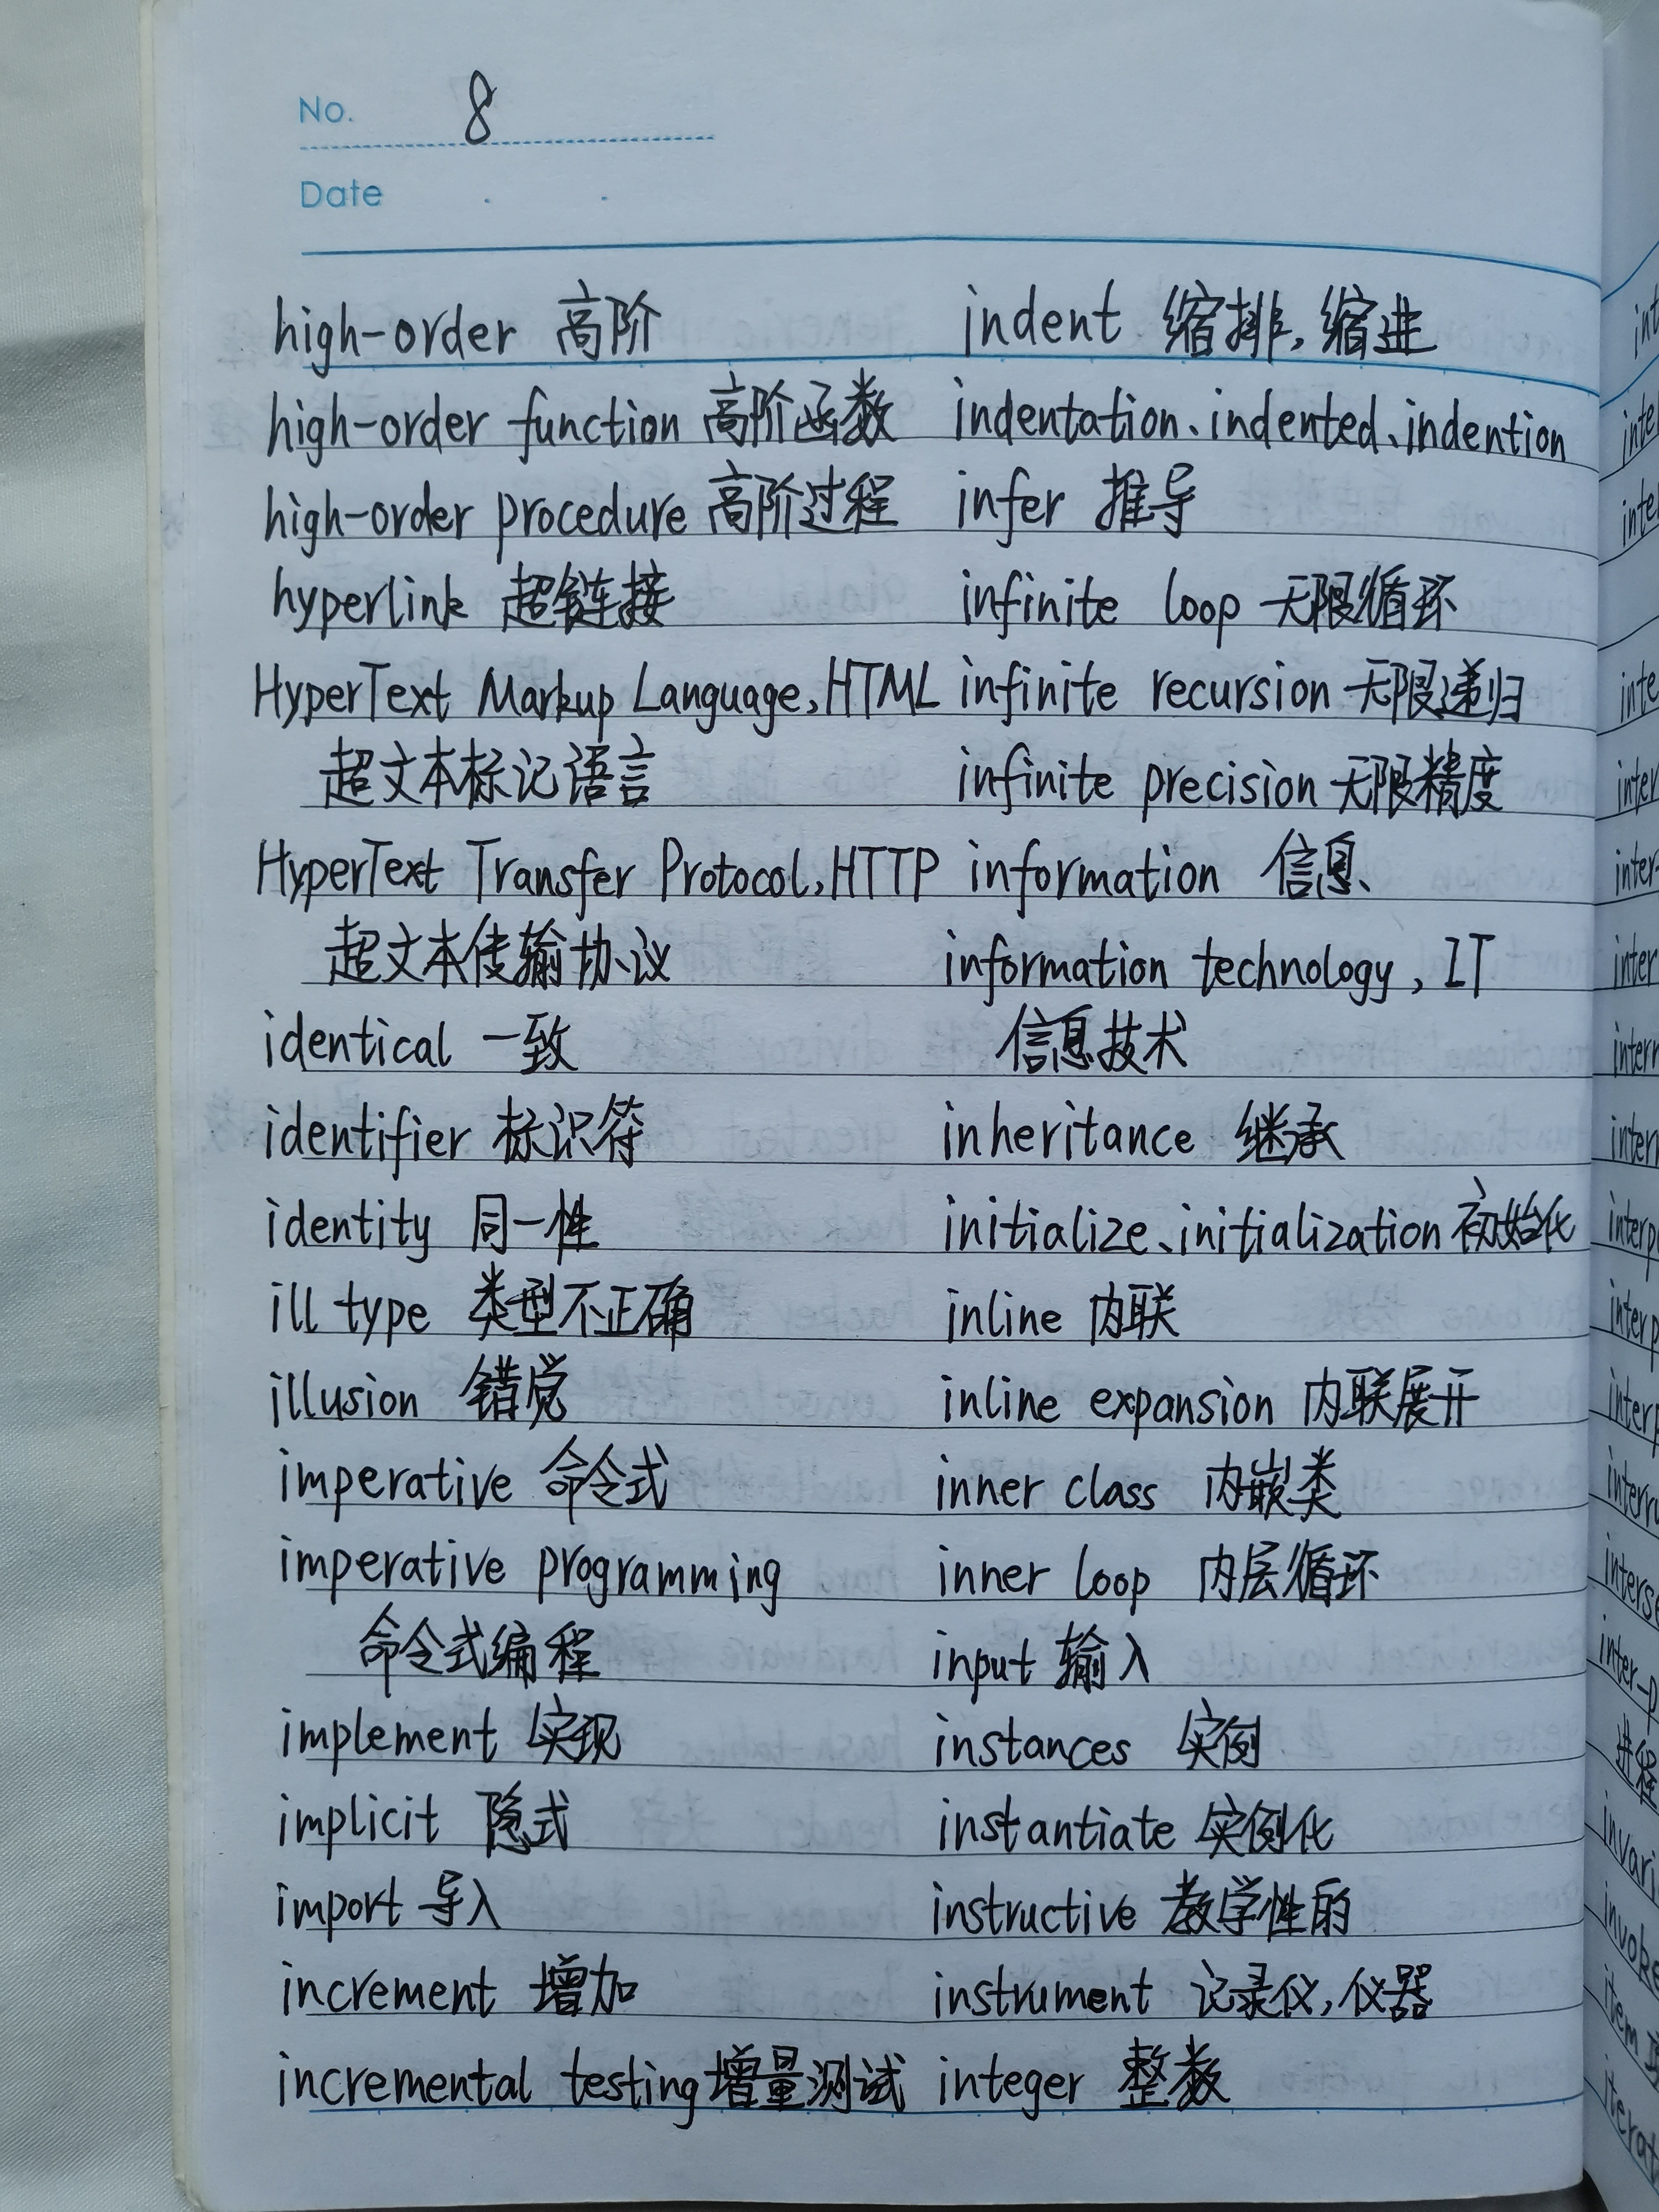 No. 8
Date
high-order 高阶
high-order function 高阶函数
high-order procedure 高阶过程
hyperlink 超链接
HyperText Markup Language, HTML
超文本标记语言
HyperText Transfer Protocol, HTTP
超文本传输协议
identical 一致
identifier 标识符
identity 同一性
ill type 类型不正确
illusion 错觉
imperative 命令式
imperative programming
命令式编程
implement 实现
implicit 隐式
import 导入
increment 增加
incremental testing 增量测试
indent 缩排, 缩进
indentation、indented、indention
infer 推导
infinite loop 无限循环
infinite recursion 无限递归
infinite precision 无限精度
information 信息
information technology, IT
信息技术
inheritance 继承
initialize、initialization 初始化
inline 内联
inline expansion 内联展开
inner class 内嵌类
inner loop 内层循环
input 输入
instances 实例
instantiate 实例化
instructive 教学性的
instrument 记录仪, 仪器
integer 整数